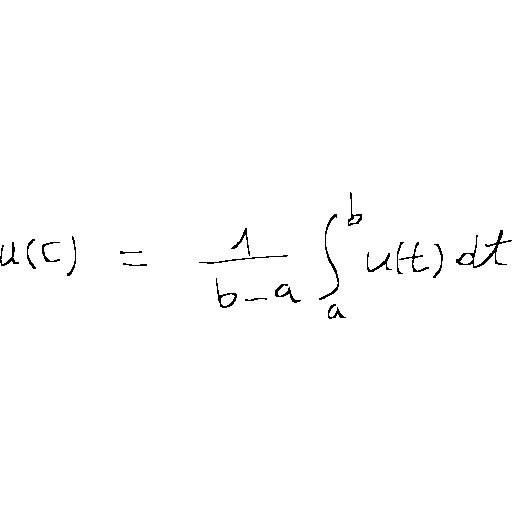 u(c) = \frac{1}{b-a} \int_{a}^{b} u(t) dt